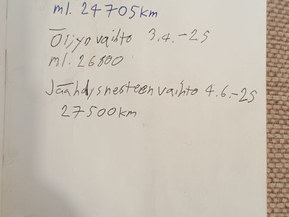 ml. 24705km
Öljyovaihto 3.4.-25
ml. 26800
Jäähdysnesteen vaihto 4.6.-25
27500km